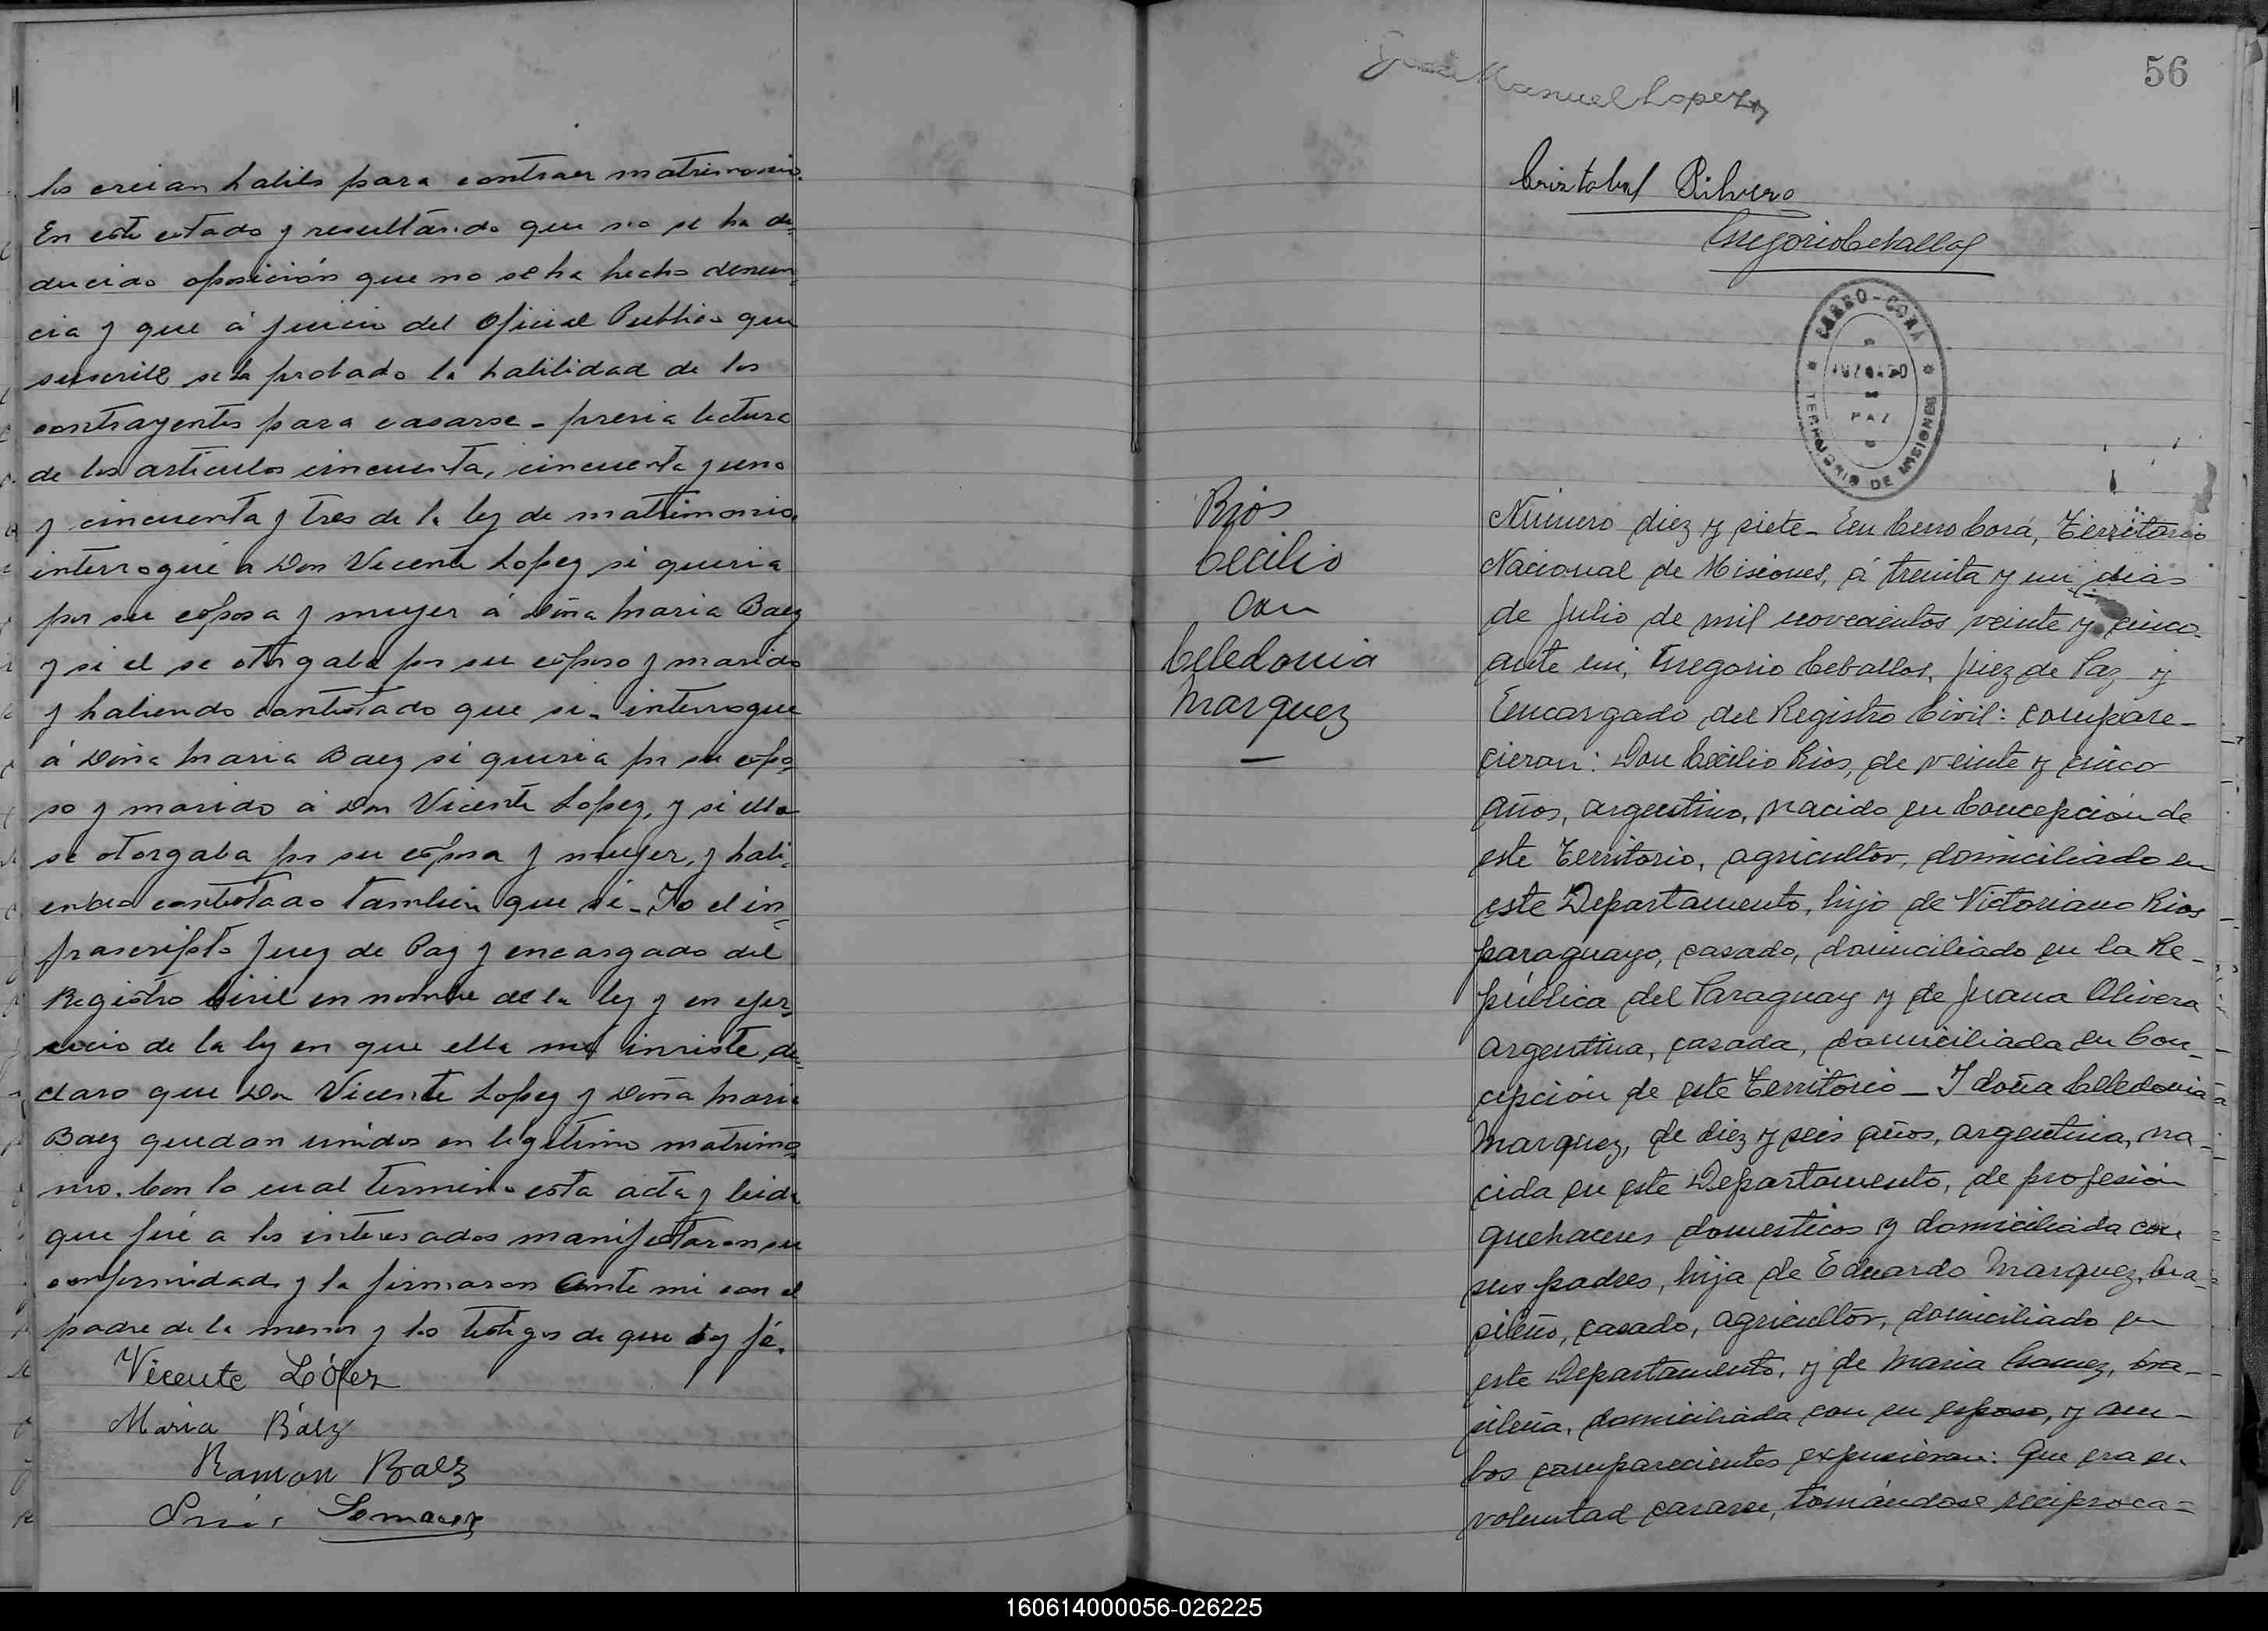 los creian habiles para contraer matrimonio.
En este estado y resultando que no se ha de-
ducido oposición que no se ha hecho denun-
cia y que á juicio del Oficial Publico que
suscribe se ha probado la habilidad de los
contrayentes para casarse - previa lectura
de los artículos cincuenta, cincuenta y uno
y cincuenta y tres de la ley de matrimonio,
interrogué a Don Vicente Lopez si queria
por su esposa y mujer á Doña Maria Baez
y si el se otorgaba por su esposo y marido
y habiendo contestado que si - interrogue
á Doña Maria Baez si queria por su espo-
so y marido á Don Vicente Lopez, y si ella
se otorgaba por su esposa y mujer, y habi-
endo contestado tambien que si - Yo el in-
frascripto Juez de Paz y encargado del
Registro Civil en nombre de la ley y en ejer-
cicio de la ley en que ella me inviste de-
claro que Don Vicente Lopez y Doña Maria
Baez quedan unidos en legitimo matrimo-
nio. Con lo cual termino esta acta y leida
que fué a los interesados manifestaron su
conformidad y la firmaron ante mi con el
padre de la menor y los testigos de que doy fé.
Vicente López
Maria Báez
Ramon Baez
56
Manuel Lopez
Cristobal Rivero
Gregorio Ceballos
CERRO-CORÁ
JUZGADO
PAZ
TERRITORIO DE MISIONES
Rios
Cecilio
con
Celedonia
Marquez
Número diez y siete - En Cerro Corá, Territorio
Nacional de Misiones, á treinta y un dias
de Julio de mil novecientos veinte y cinco.
ante mi, Gregorio Ceballos, Juez de Paz y
Encargado del Registro Civil: compare-
cieron: Don Cecilio Rios, de veinte y cinco
años, argentino, nacido en Concepción de
este Territorio, agricultor, domiciliado en
este Departamento, hijo de Victoriano Rios
paraguayo, casado, domiciliado en la Re-
pública del Paraguay y de Juana Olivera
argentina, casada, domiciliada en Con-
cepción de este Territorio - Y doña Celedonia
Marquez, de diez y seis años, argentina, na-
cida en este Departamento, de profesión
quehaceres domesticos y domiciliada con
sus padres, hija de Eduardo Marquez, bra-
sileño, casado, agricultor, domiciliado en
este Departamento, y de Maria Gomez, bra-
sileña, domiciliada con su esposo, y am-
bos comparecientes expusieron: Que era su
voluntad casarse, tomándose reciproca=
160614000056-026225